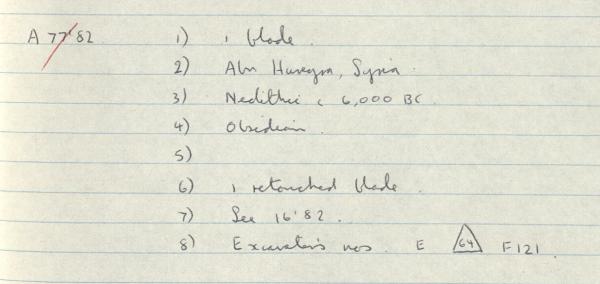 A 77'82 1) 1 blade.
2) Abu Hureyra, Syria.
3) Neolithic c 6,000 BC.
4) Obsidian.
5)
6) 1 retouched blade.
7) See 16'82.
8) Excavator's nos. E 64 F121